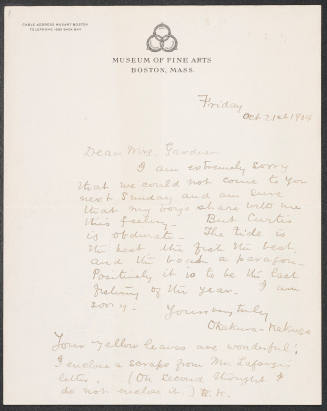 CABLE ADDRESS MUSART BOSTON
TELEPHONE BACK BAY
MUSEUM OF FINE ARTS
BOSTON, MASS.
Friday
Oct 21st 1904
Dear Mrs. Gardner
I am extremely sorry
that we could not come to you
next Sunday and am sure
that my boys share with me
this feeling. But Curtis
is obdurate. The tide is
the best the fish the best
and the boat a paragon.
Positively it is to be the last
fishing of the year. I am
sorry.
Yours very truly
Okakura-Kakuzo
Your yellow leaves are wonderful!
I enclose a scraps from Mr. Lafarge's
letter. (On second thought I
do not enclose it.)